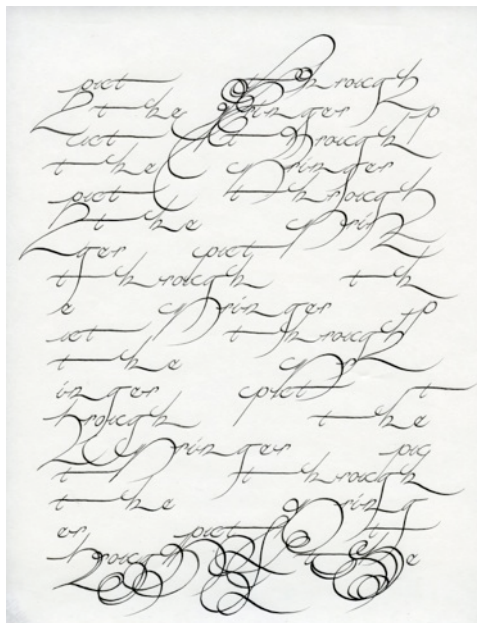 put through
the wringer p
ut through
the wringer
put through
the wrin
ger put
through th
e wringer p
ut through
the wr
inger put t
hrough the
wringer pu
t through
the wring
er put t
hrough the